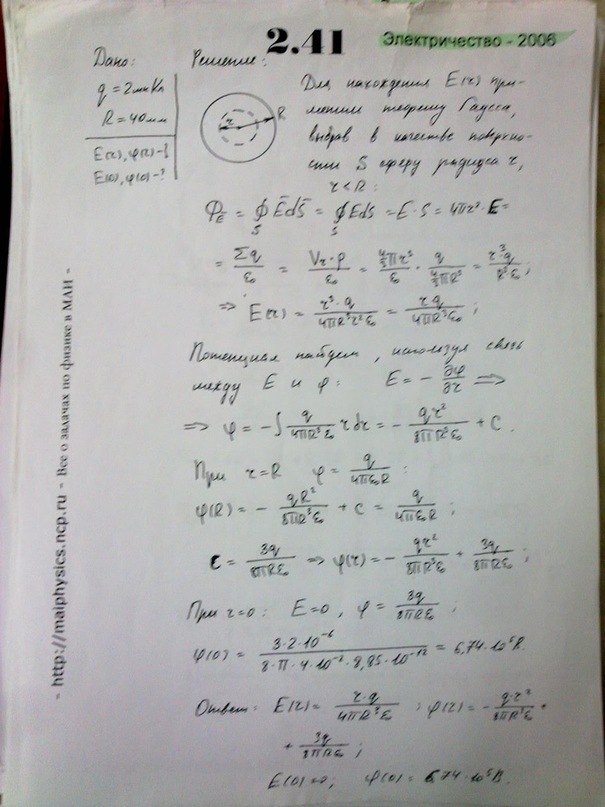 2.41
Электричество - 2006
Дано:
q = 2мкКл
R = 40мм
E(r), φ(r) - ?
E(0), φ(0) - ?
Решение:
r
R
Для нахождения E(r) при-
меним теорему Гаусса,
выбрав в качестве поверхно-
сти S сферу радиуса r,
r < R:
Φ_E = ∮_S E̅dS̅ = ∮_S EdS = E·S = 4πr²·E =
= Σq/ε₀ = V_r·ρ/ε₀ = (4/3πr³)/ε₀ · q/(4/3πR³) = r³·q/(R³ε₀);
⇒ E(r) = r³·q/(4πR³r²ε₀) = rq/(4πR³ε₀);
Потенциал найдем, используя связь
между E и φ: E = -∂φ/∂r ⇒
⇒ φ = -∫ q/(4πR³ε₀) r dr = - qr²/(8πR³ε₀) + C.
При r=R φ = q/(4πε₀R) :
φ(R) = - qR²/(8πR³ε₀) + C = q/(4πε₀R);
C = 3q/(8πRε₀) ⇒ φ(r) = - qr²/(8πR³ε₀) + 3q/(8πRε₀);
При r=0: E=0, φ = 3q/(8πRε₀);
φ(0) = 3·2·10⁻⁶/(8·π·4·10⁻²·8,85·10⁻¹²) = 6,74·10⁵В.
Ответ: E(r) = r·q/(4πR³ε₀); φ(r) = - q·r²/(8πR³ε₀) +
+ 3q/(8πRε₀);
E(0)=0; φ(0) = 6,74·10⁵В.
- http://maiphysics.ncp.ru - Все о задачах по физике в МАИ -